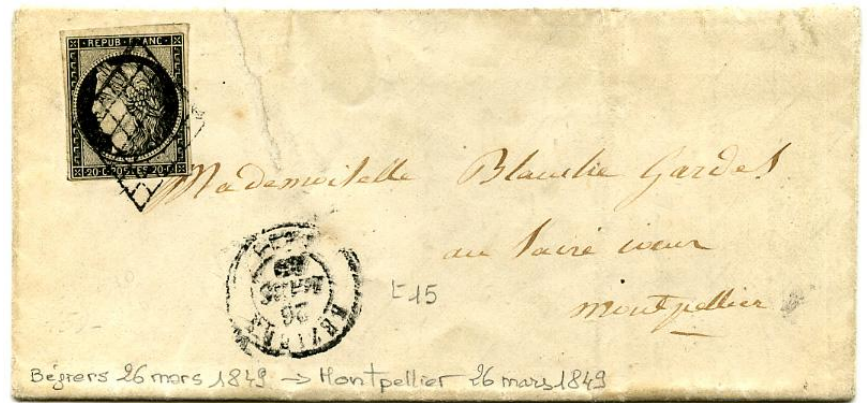 REPUB FRANC
20 C POSTES 20 C
Mademoiselle Blanche Gardes
au Sacré coeur
montpellier
BEZIERS
26
MARS
49
t 15
Béziers 26 mars 1849 → Montpellier 26 mars 1849